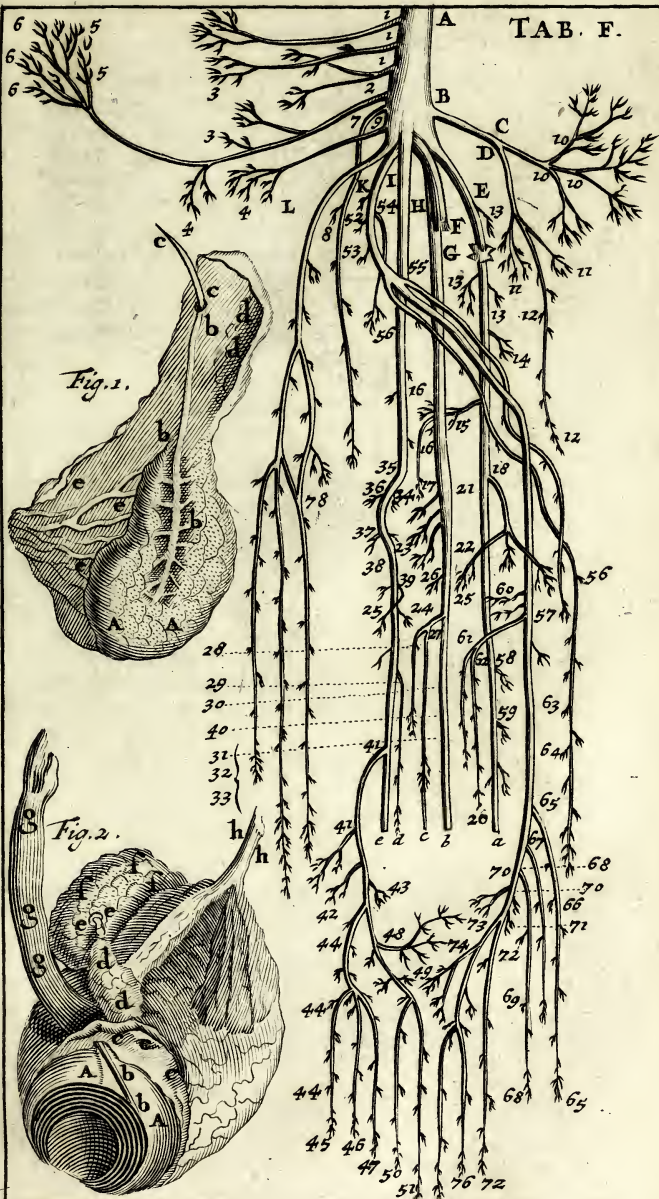 TAB. F.
A
B
C
D
E
F
G
H
I
K
L
1
1
1
2
3
3
4
4
5
5
6
6
6
7
8
9
10
10
10
11
11
12
12
13
13
13
14
15
16
16
17
18
20
21
22
23
24
25
25
26
27
28
29
30
31
32
33
34
35
36
37
38
39
40
41
41
42
43
44
44
44
45
46
47
48
49
50
51
52
53
54
55
56
56
57
58
59
60
61
62
63
64
65
65
66
67
68
68
69
70
70
71
72
72
73
74
76
78
a
b
c
d
e
Fig. 1.
c
c
b
d
d
b
e
e
b
e
A
A
Fig. 2.
g
g
g
h
h
f
f
f
e
e
d
d
c
c
e
A
b
b
A